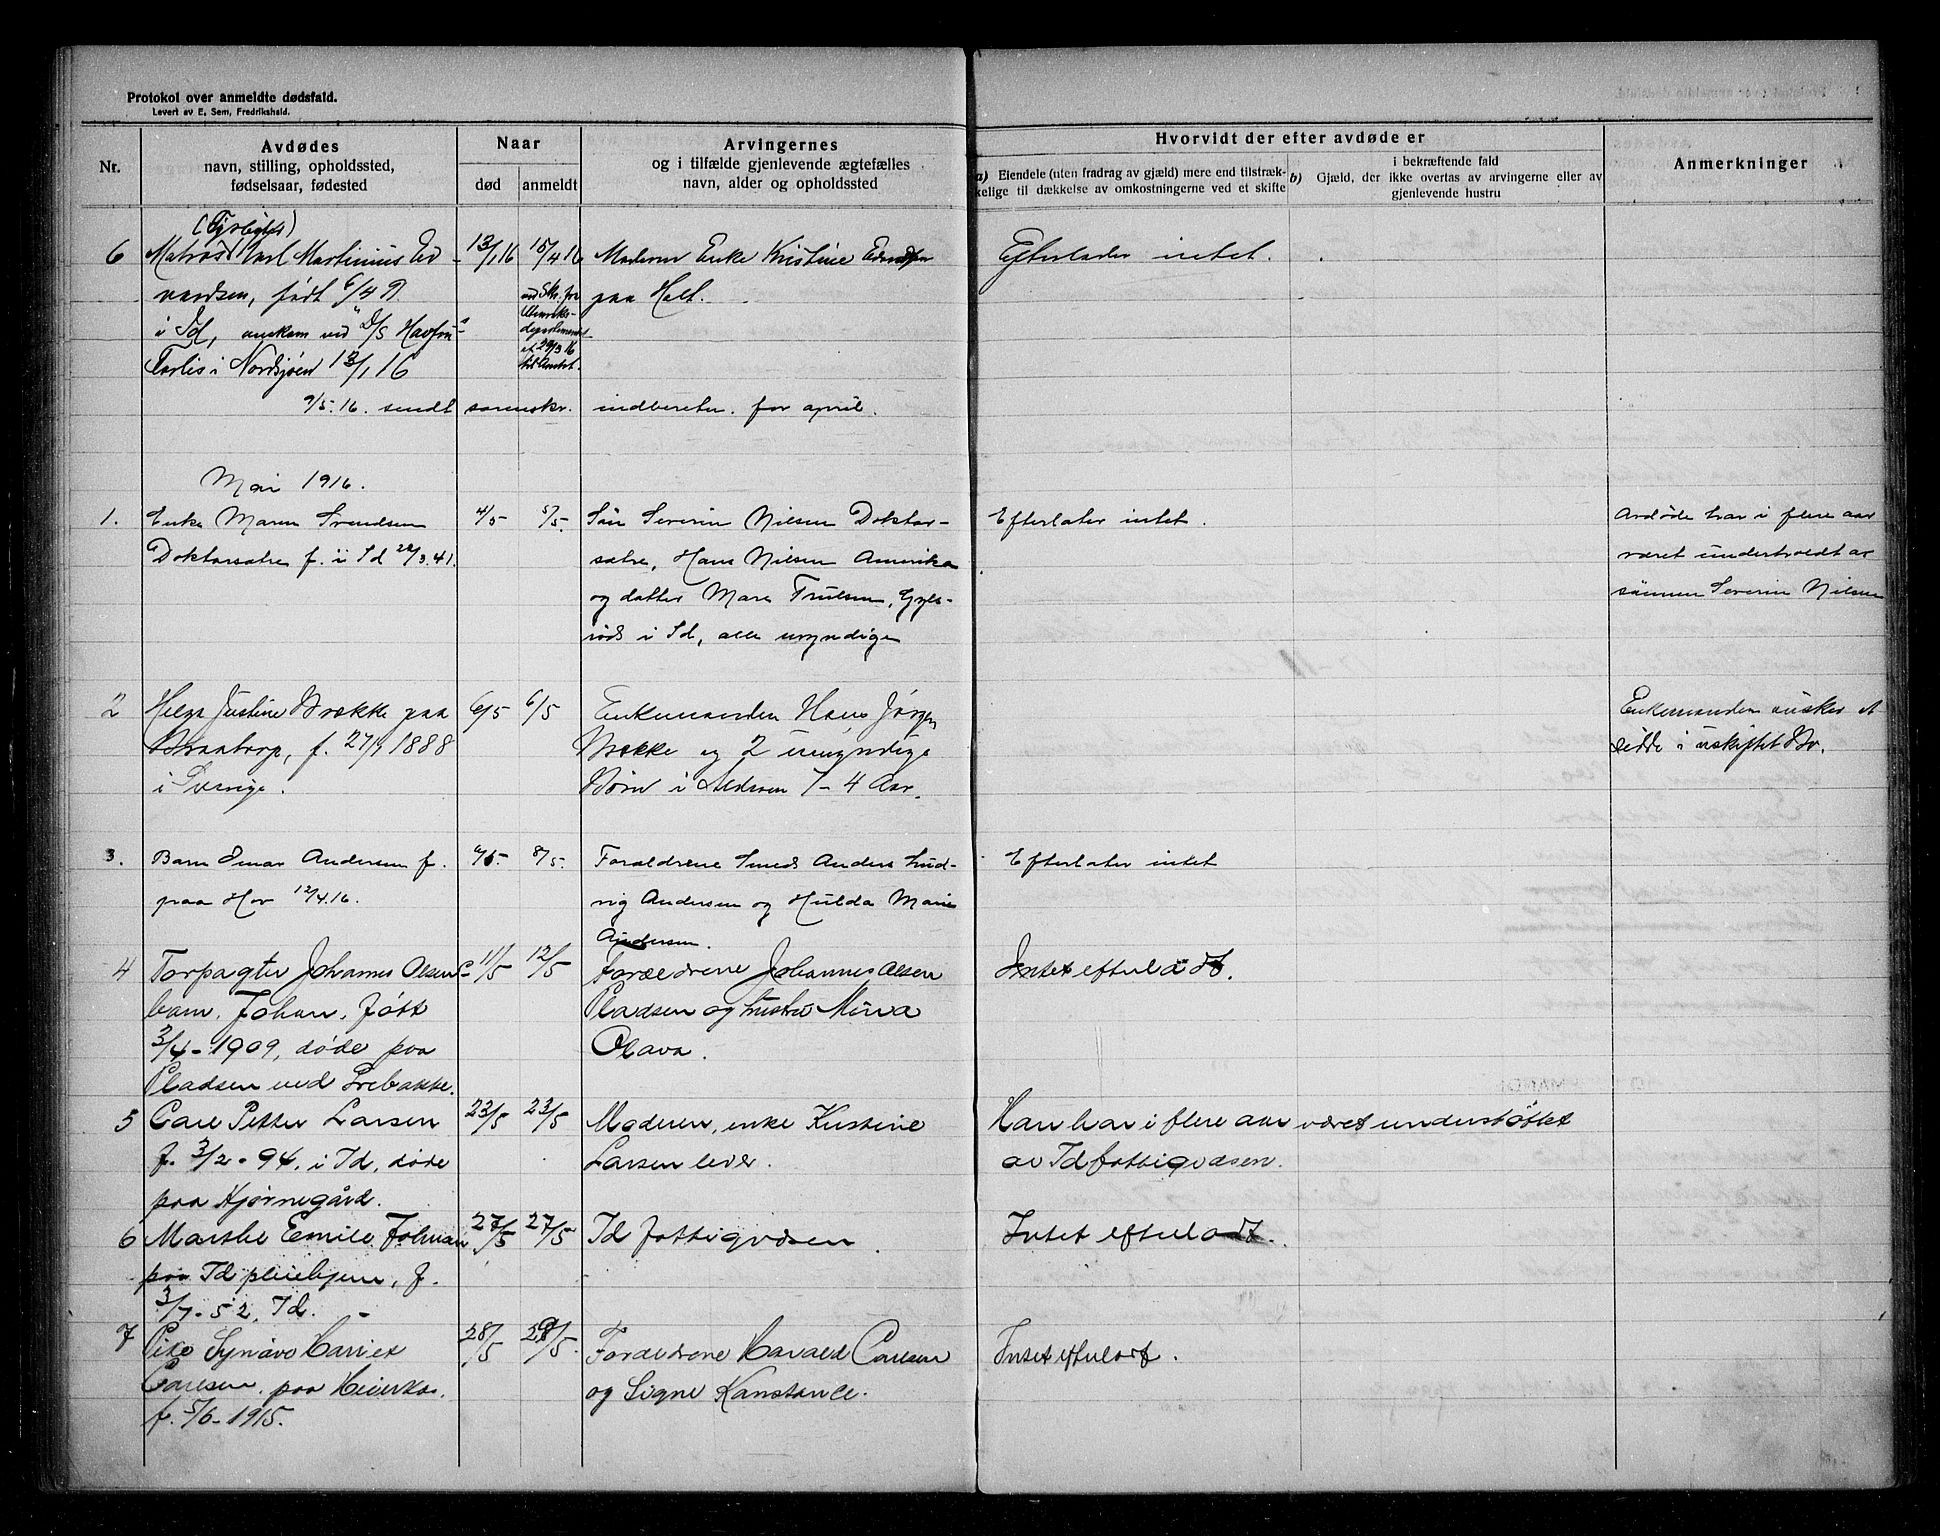 Protokol over anmeldte dødsfald.
Levert av E. Sem, Fredrikshald.
Nr.
Avdødes
navn, stilling, opholdssted,
fødselsaar, fødested
Naar
død
anmeldt
Arvingernes
og i tilfælde gjenlevende ægtefælles
navn, alder og opholdssted
Hvorvidt der efter avdøde er
a) Eiendele (uten fradrag av gjæld) mere end tilstræk-
kelige til dækkelse av omkostningerne ved et skifte
b) Gjæld, der
i bekræftende fald
ikke overtas av arvingerne eller av
gjenlevende hustru
Anmerkninger
6 Matros Karl Martinius Ed
vardsen, født 6/4 97
i Id, omkom ved D/S Havfru's
Forlis i Nordsjøen 13/1 16
13/1 16
15/4 16
ved Skr. fra
Utenriks-
departementet
til Amtet.
Moderen Enke Kristine Edvardsen
paa Holt.
Efterlader intet.
9/5.16. sendt sorenskr. indberetn. for april.
Mai 1916.
1. Enke Maren Svendsen
Doktorsætre f. i Id 22/3.41.
4/5
5/5.
Søn Severin Nilsen Doktor-
sætre, Hans Nilsen Amerika
og datter Maren Trulsen,
i Id, alle myndige
Efterlater intet.
Avdøde har i flere aar
været understødt av
sønnen Severin Nilsen
2 Helga Justine Brække paa
Braatorp, f. 27/9 1888
i Sverige.
6/5
6/5
Enkemanden Hans Jørgen
Brække og 2 umyndige
Børn i Alderen 7 - 4 Aar.
Enkemanden ønsker at
sidde i uskiftet Bo.
3. Barn Einar Andersen f.
paa Hov 12/4.16.
8/5.
Forældrene Smed Anders Lud-
vig Andersen og Hulda Marie
Andersen.
Efterlater intet
4 Forpagter Johannes Olsens
barn, Johan, født
3/4 - 1909, døde paa
Pladsen ved Prebakke.
11/5
12/5
Forældrene Johannes Olsen
Pladsen og hustru Mina
Olava.
Intet efterladt.
5 Carl Petter Larsen
f. 3/2 - 94, i Id, døde
paa Hjørnegård.
23/5
23/5
Moderen, enke Kristine
Larsen lever.
Han har i flere aar været understøttet
av Id fattigvæsen.
6 Marthe Emilie Johnsen
paa Id pleiehjem, f.
3/7 - 52, Id.
27/5
27/5
Id fattigvæsen
Intet efterladt.
7 Pike Synøve Hariet
Carlsen paa
f. 5/6 - 1915.
28/5
29/5.
Forældrene Harald Carlsen
og Signe Konstance.
Intet efterladt.